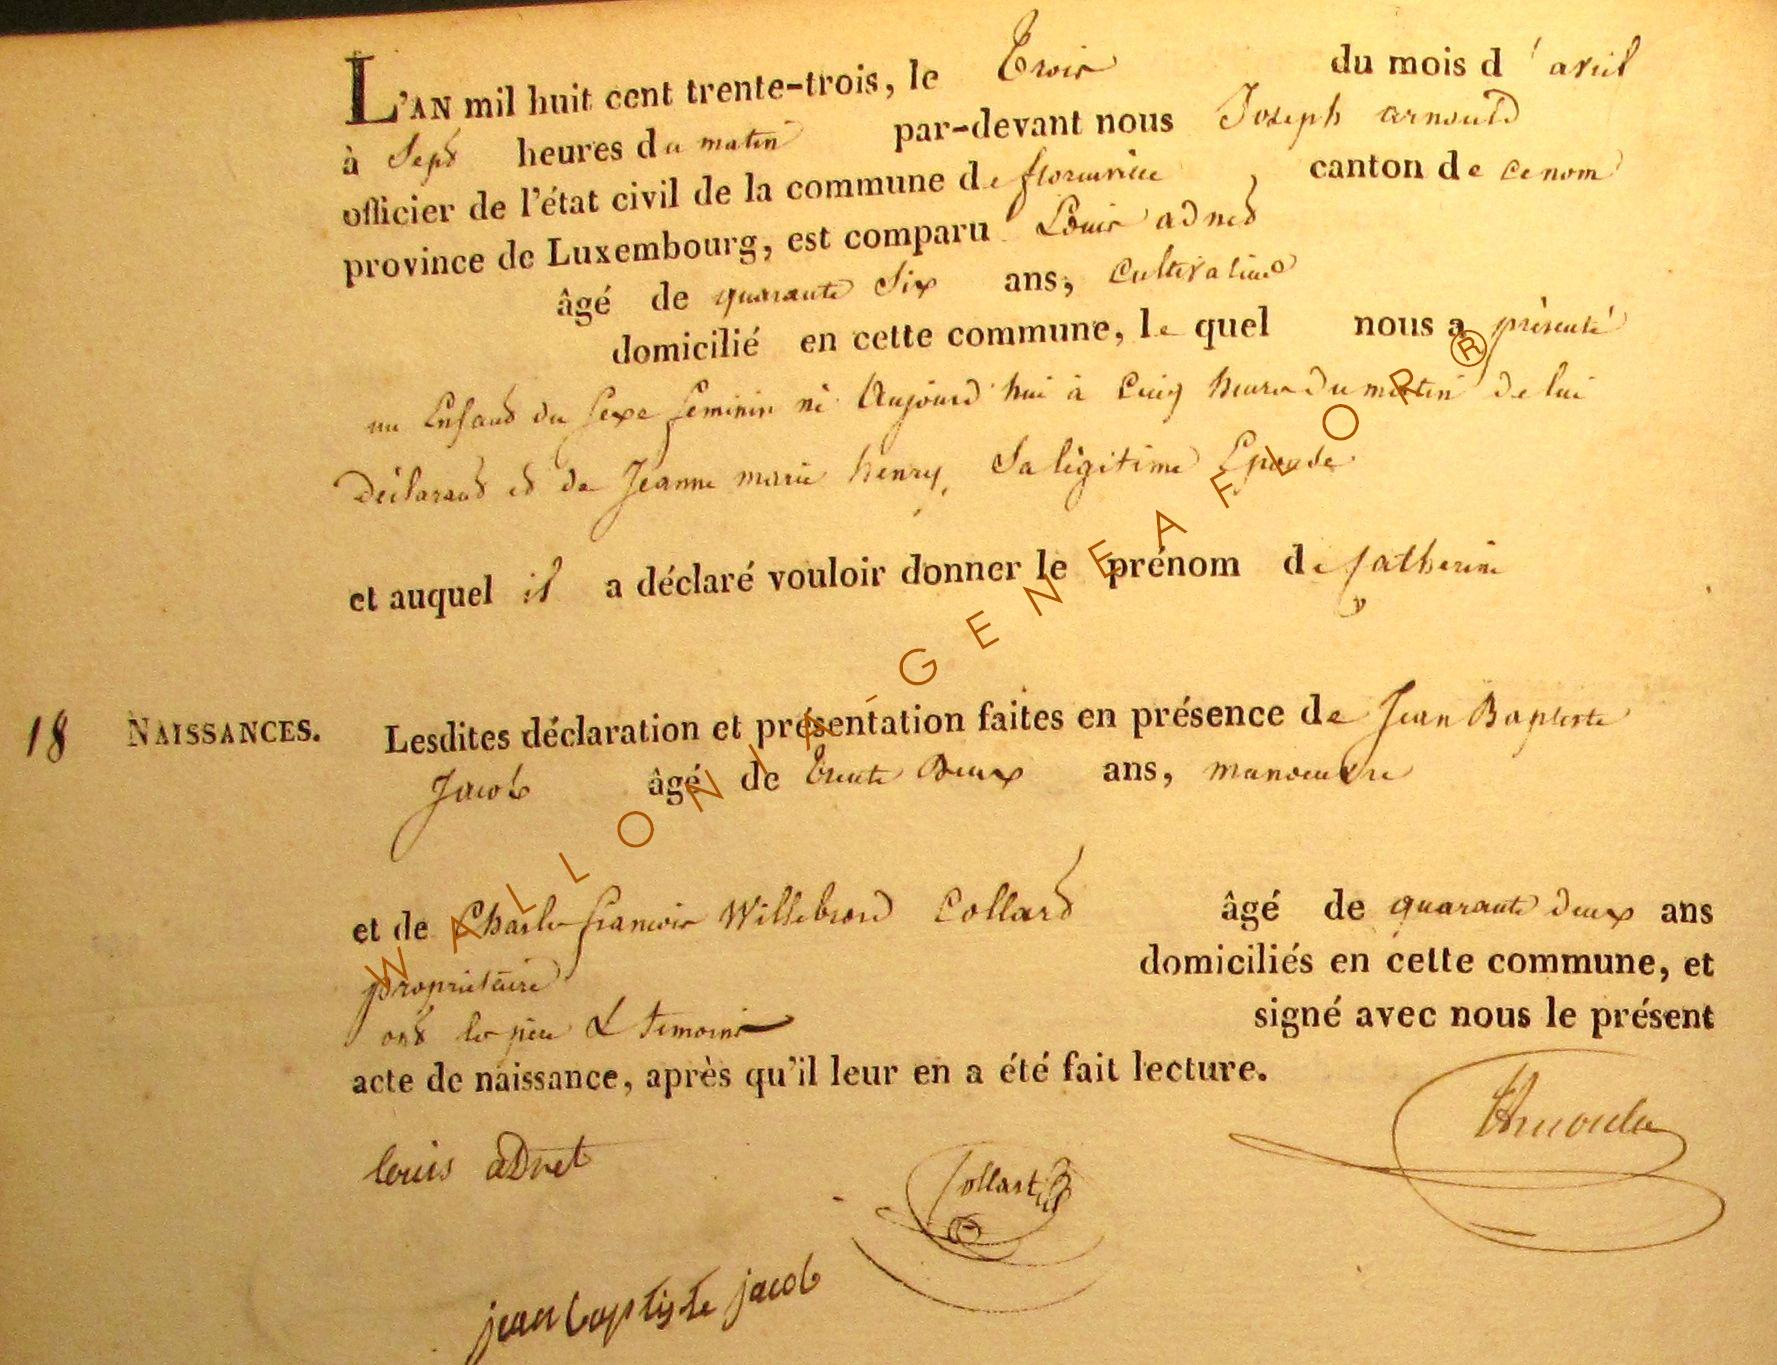 L'AN mil huit cent trente-trois, le Trois du mois d'avril
à Sept heures du matin par-devant nous Joseph arnould
officier de l'état civil de la commune de florenville, canton de ce nom
province de Luxembourg, est comparu Louis adnet
âgé de quarante Six ans, Cultivateur
domicilié en cette commune, le quel nous a présenté
un Enfant du Sexe feminin né Aujourd'hui à Cinq heures du matin de lui
Déclarant et de Jeanne marie henry, Sa légitime Epouse
et auquel il a déclaré vouloir donner le prénom de Catherine
18 NAISSANCES. Lesdites déclaration et présentation faites en présence de Jean Baptiste
Jacob âgé de trente Deux ans, manoeuvre
et de Charles francois Willebrord Collard âgé de quarante deux ans
propriétaire domiciliés en cette commune, et
ont les père & témoins signé avec nous le présent
acte de naissance, après qu'il leur en a été fait lecture.
Arnould
louis aDnet
Collart
jean baptiste jacob
WALLONIA - GENEAFLOR ®